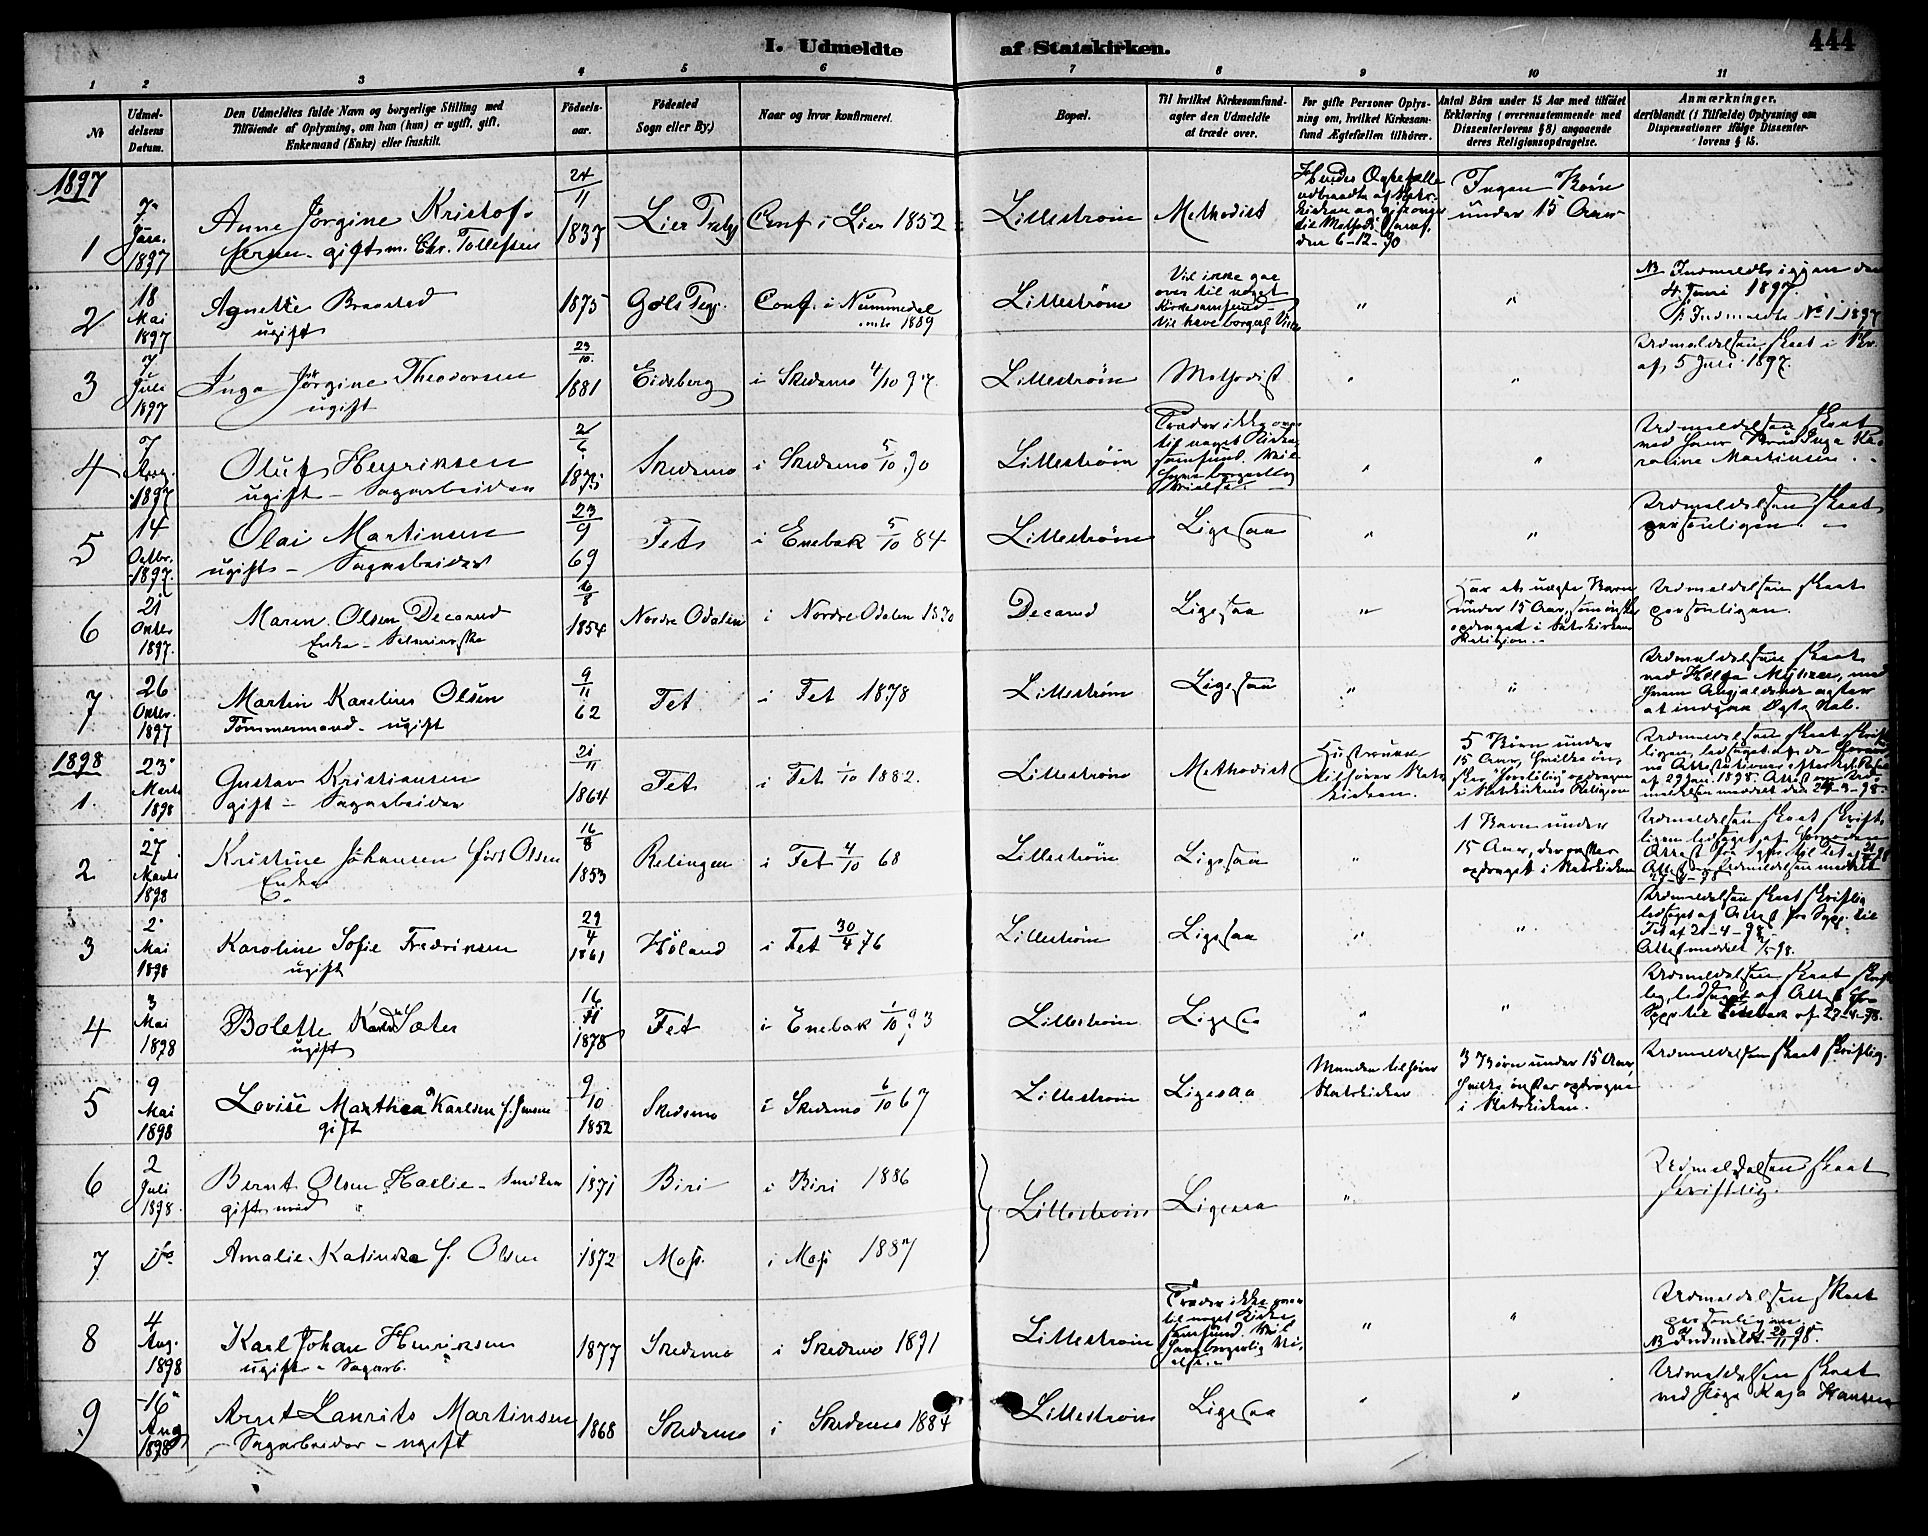 I. Udmeldte af Statskirken.
444
1 2 3 4 5 6 7 8 9 10 11
No
Udmel-
delsens
Datum.
Den Udmeldtes fulde Navn og borgerlige Stilling med
Tilføiende af Oplysning, om han (hun) er ugift, gift,
Enkemand (Enke) eller fraskilt.
Fødsels-
aar.
Fødested
Sogn eller By.)
Naar og hvor konfirmeret.
Bopæl.
Til hvilket Kirkesamfund-
agter den Udmeldte
at træde over.
For gifte Personer Oplys-
ning om, hvilket Kirkesam-
fund Ægtefællen tilhører.
Antal Børn under 15 Aar med tilføiet
Erklæring (overensstemmende med
Dissenterlovens § 8) angaaende
deres Religionsopdragelse.
Anmærkninger,
deriblandt (i Tilfælde) Oplysning om
Dispensationer ifølge Dissenter-
lovens § 15.
1897
1
7
1897
Anne Jørgine Kristof-
fersen - gift m. Chr. Tollefsen
24/11
1837
Lier
Conf. i Lier 1852
Lillestrøm
Methodist
den 6-12-90
Ingen Børn
under 15 Aar
2
18
Mai
1897
Agnette
ugift
1875
Conf. i Nummedal
1889
Lillestrøm
Vil ikke gaa
over til noget
Kirkesamfund
"
"
NB Indmeldt igjen den
4 Juni 1897.
Indmeldte No 1 1897
3
7
Juli
1897
Inga Jørgine Theodorsen
ugift
23/10
1881
Eidsberg
i Skedsmo 4/10 97.
Lillestrøm
Methodist
"
"
Udmeldelsen skeet i Br.
af 5 Juli 1897.
4
7
Aug.
1897
Oluf Henriksen
ugift - Sagarbeider
2/6
1875
Skedsmo
i Skedsmo 5/10 90
Lillestrøm
Træder ikke over
til noget Kirke-
samfund. Vil
have borgerlig
Vielse.
"
"
Udmeldelsen skeet
ved hans Brud Inga Ka-
roline Martinsen.
5
14
Octbr.
1897.
Olai Martinsen
ugift - Sagarbeider
23/9
69
Fet
i Enebak 5/10 84
Lillestrøm
Ligesaa
"
"
Udmeldelsen skeet
personligen.
6
21
Octbr
1897.
Maren Olsen Decarud
Enke
1854
Nordre Odalen
i Nordre Odalen 1870
Decarud
Ligesaa
"
Har et uægte Barn
under 15 Aar, som ønskes
opdraget i Statskirkens
Religion.
Udmeldelsen skeet
personligen.
7
26
Octbr.
1897
Martin Karelius Olsen
Tømmermand - ugift
9/11
62
Fet
i Fet 1878
Lillestrøm
Ligesaa
"
"
Udmeldelsen skeet
1898
1.
23
Marts
1898
Gustav Kristiansen
gift - Sagarbeider
21/11
1864
Fet
i Fet 1/10 1882.
Lillestrøm
Methodist
Hustruen
tilhører Stats-
kirken.
5 Børn under
15 Aar, hvilke øn-
skes opdragne
i Statskirkens Religion
2
27
Marts
1898
Kristine Johansen født Olsen
Enke
16/8
1853
Relingen
i Fet 4/10 68
Lillestrøm
Ligesaa
"
1 Barn under
15 Aar, der ønskes
opdraget i Statskirken
3
2
Mai
1898
Karoline Sofie Fredriksen
ugift
29/4
1861
Høland
i Fet 30/4 76
Lillestrøm
Ligesaa
"
"
Udmeldelsen skeet skriftlig
ledsaget af Attest fra Sgpr. til
Fet af 21-4-98.
4
3
Mai
1898
Bolette Sæter
ugift
16/11
1878
Fet
i Enebak 1/10 93
Lillestrøm
Ligesaa
"
"
Sgpr til Enebak af 27-4-98.
5
9
Mai
1898
Lovise Marthea Karlsen f. Jensen
gift
9/10
1852
Skedsmo
i Skedsmo 6/10 67
Lillestrøm
Ligesaa
Manden tilhører
Statskirken
3 Børn under 15 Aar,
hvilke ønskes opdragne
i Statskirken.
Udmeldelsen skeet skriftlig.
6
2
Juli
1898.
Bernt Olsen Hælie - Snedker
gift med
1871
Biri
i Biri 1886
Lillestrøm
Ligesaa
"
Udmeldelsen skeet
skriftlig.
7
Do
Amalie Katinka f. Olsen
1872
Moss.
i Moss 1887
8
4
Aug.
1898
Karl Johan Henriksen
ugift - Sagarb.
1877
Skedsmo
i Skedsmo 1891
Lillestrøm
Træder ikke over
til noget Kirke-
samfund. Vil
have borgerlig Vi-
else.
"
"
Udmeldelsen skeet
personligen.
NB Indmeldt 98.
9
16
Aug
1898
Arnt Laurits Martinsen
Sagarbeider - ugift
1868
Skedsmo
i Skedsmo 1884
Lillestrøm
Ligesaa
"
"
Udmeldelsen skeet
ved Pige Kaja Hansen